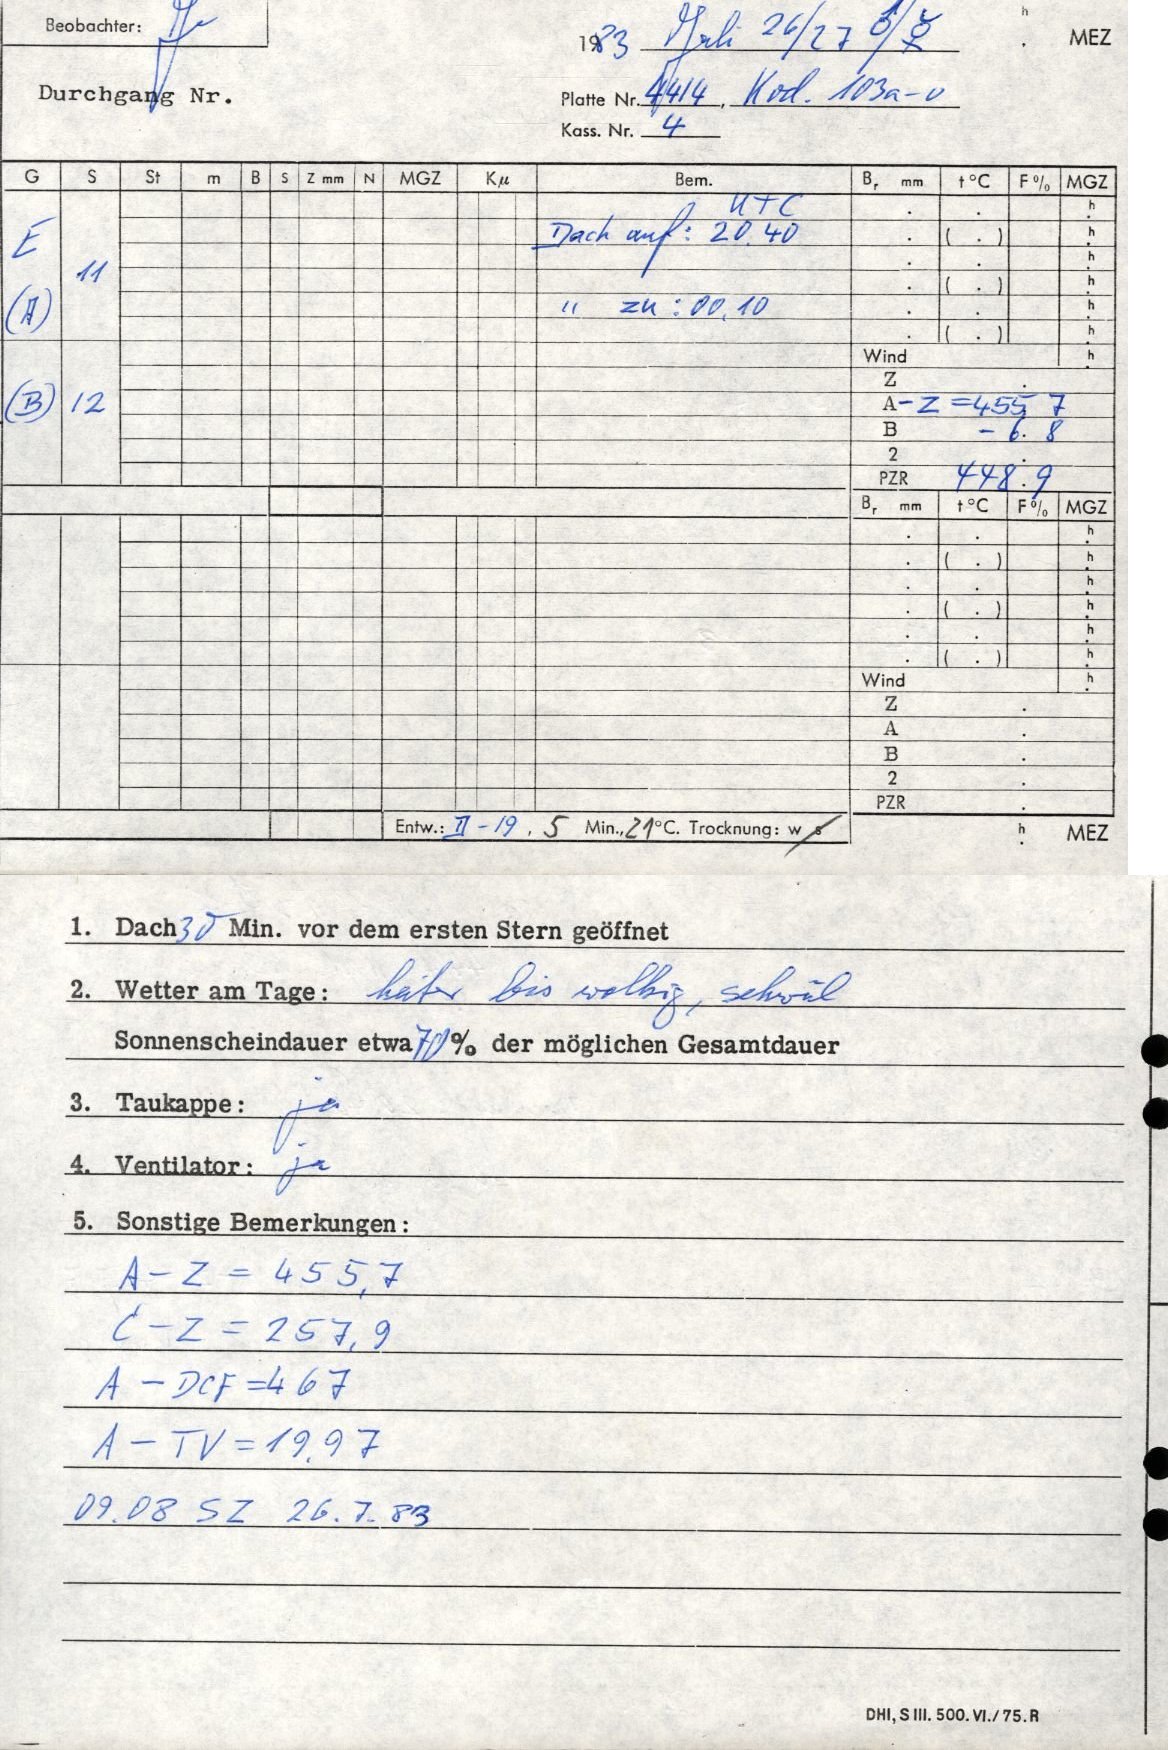 Beobachter:
h
1983 Juli 26/27 ♂/☿ . MEZ
Durchgang Nr.
Platte Nr. 4414, Kod. 103a-0
Kass. Nr. 4
G S St m B S Z mm N MGZ Kμ Bem. Br mm t °C F% MGZ
UTC . . h
E Dach auf: 20.40 . ( . ) h
11 . . h
. ( . ) h
(A) " zu: 00.10 . . h
. ( . ) h
Wind h
Z .
(B) 12 A - Z = 455,7
B - 6.8
2 .
PZR 448.9
Br mm t °C F% MGZ
. . h
. ( . ) h
. . h
. ( . ) h
. . h
. ( . ) h
Wind h
Z .
A .
B .
2 .
PZR .
Entw.: II-19, 5 Min., 21°C. Trocknung: w s h MEZ
1. Dach 30 Min. vor dem ersten Stern geöffnet
2. Wetter am Tage: heiter bis wolkig, schwül
Sonnenscheindauer etwa 70% der möglichen Gesamtdauer
3. Taukappe: ja
4. Ventilator: ja
5. Sonstige Bemerkungen:
A - Z = 455,7
C - Z = 257,9
A - DCF = 467
A - TV = 19,97
09.08 SZ 26.7.83
DHI, S III. 500. VI./75. R